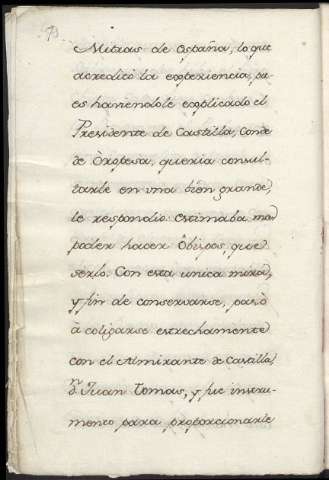 Mitras de España, lo que
acreditó la experiencia, pu-
es haviendole explicado el
Presidente de Castilla, Conde
de Oropesa, queria consul-
tarle en una bien grande,
le respondio: estimaba mas
poder hacer Obispos, que
serlo. Con esta unica mira,
y fin de conservarse, pasò
à coligarse estrechamente
con el Almirante de Castilla,
Dn. Juan Tomas, y fue instru-
mento para proporcionarle